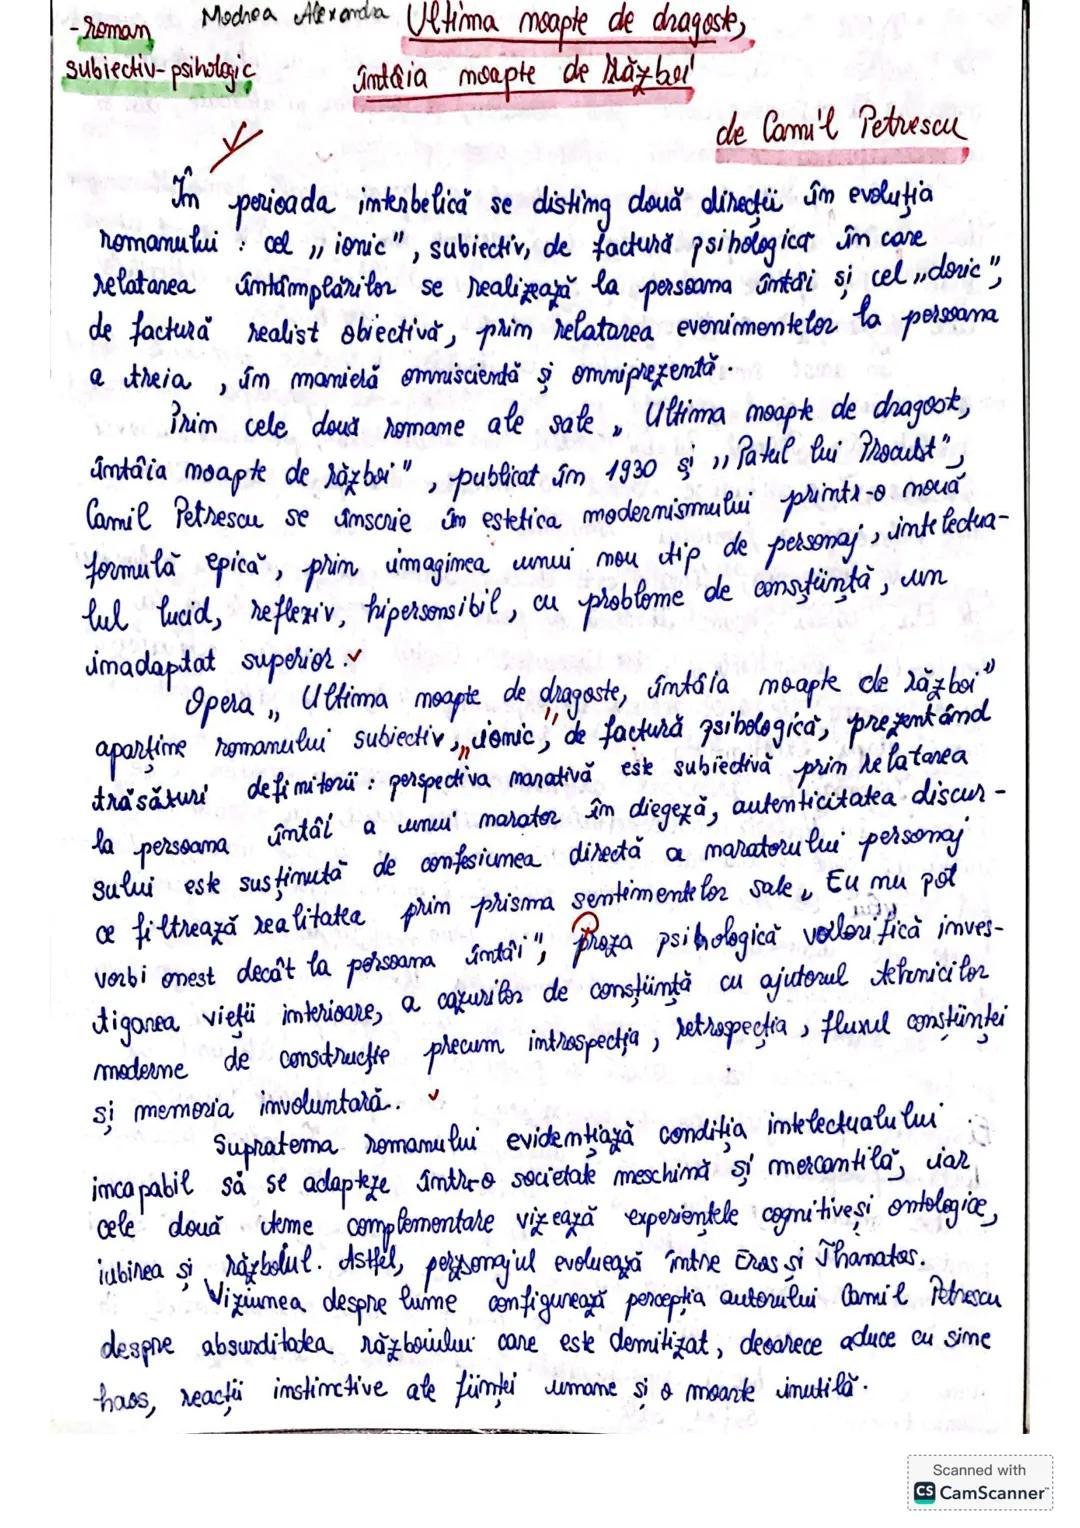 - Roman
Modrea Alexandra
Ultima noapte de dragoste,
subiectiv- psihologic
întâia noapte de Război
de Camil Petrescu
În perioada interbelică se disting două direcții în evoluția
romanului : cel ,, ionic", subiectiv, de factură psihologică în care
relatarea întâmplărilor se realizează la persoana întâi și cel ,,doric",
de factură realist obiectivă, prin relatarea evenimentelor la persoana
a treia , în manieră omniscientă și omniprezentă.
Prin cele două romane ale sale ,, Ultima noapte de dragoste,
întâia noapte de război" , publicat în 1930 și ,, Patul lui Procust",
Camil Petrescu se înscrie în estetica modernismului printr-o nouă
formulă epică, prin imaginea unui nou tip de personaj, intelectua-
lul lucid, reflexiv, hipersensibil, cu probleme de conștiință, un
inadaptat superior.
Opera ,, Ultima noapte de dragoste, întâia noapte de război"
aparține romanului subiectiv, ,,ionic", de factură psihologică, prezentând
trăsături definitorii : perspectiva narativă este subiectivă prin relatarea
la persoana întâi a unui narator în diegeză, autenticitatea discur-
sului este susținută de confesiunea directă a naratorului personaj
ce filtrează realitatea prin prisma sentimentelor sale ,, Eu nu pot
vorbi onest decât la persoana întâi"; proza psihologică valorifică inves-
tigarea vieții interioare, a cazurilor de conștiință cu ajutorul tehnicilor
moderne de construcție precum introspecția, retrospecția, fluxul conștiinței
și memoria involuntară.
Supratema romanului evidențiază condiția intelectualului
incapabil să se adapteze într-o societate meschină și mercantilă, iar
cele două teme complementare vizează experiențele cognitive și ontologice,
iubirea și războlul. Astfel, personajul evoluează între Eros și Thanatos.
Viziunea despre lume configurează percepția autorului Camil Petrescu
despre absurditatea războiului care este demitizat, deoarece aduce cu sine
haos, reacții instinctive ale ființei umane și o moarte inutilă.
Scanned with
CS CamScanner